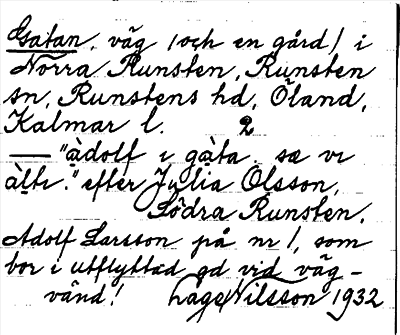 Gatan, väg (och en gård) i
Norra Runsten, Runsten
sn, Runstens hd, Öland,
Kalmar l. 2
— "àdolf i gàta sæ vi
àlti." efter Julia Olsson,
Södra Runsten.
Adolf Larsson på nr 1, som
bor i utflyttad gd vid väg-
vänd! Lage Nilsson 1932